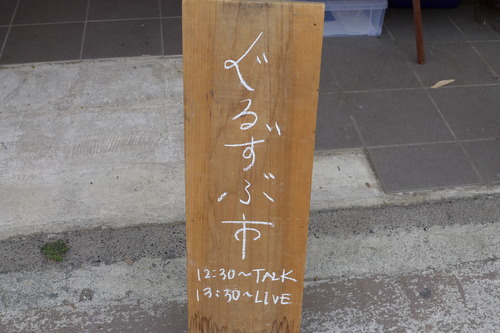 ぐるずぶ市
12:30～TALK
13:30～LIVE